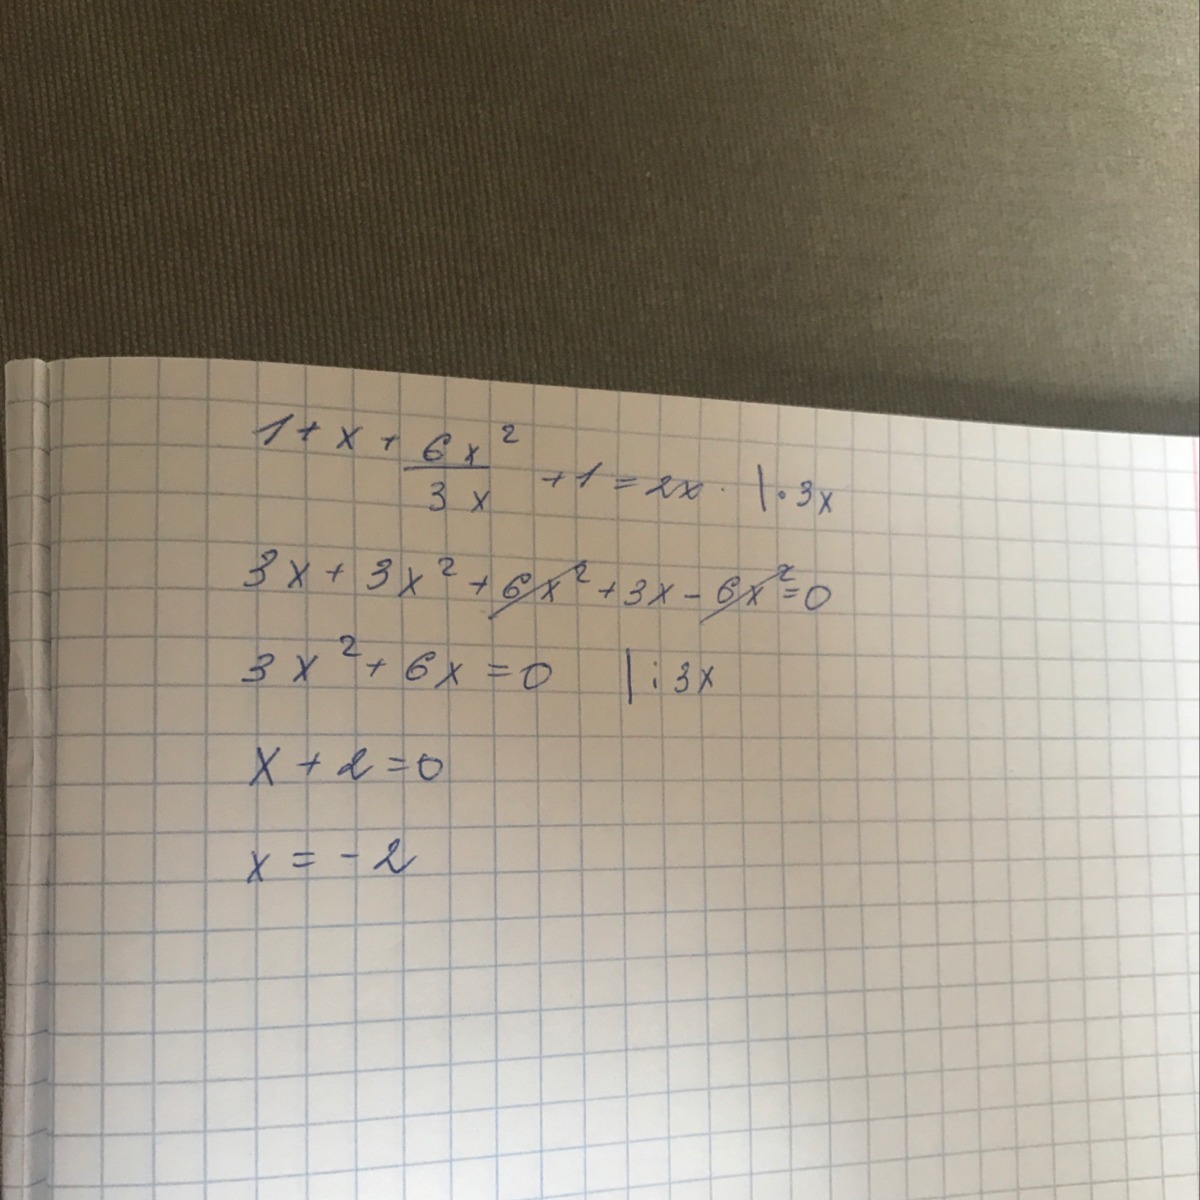 1 + x + 6x²/3x + 1 = 2x. | · 3x
3x + 3x² + 6x² + 3x - 6x² = 0
3x² + 6x = 0 | : 3x
x + 2 = 0
x = -2